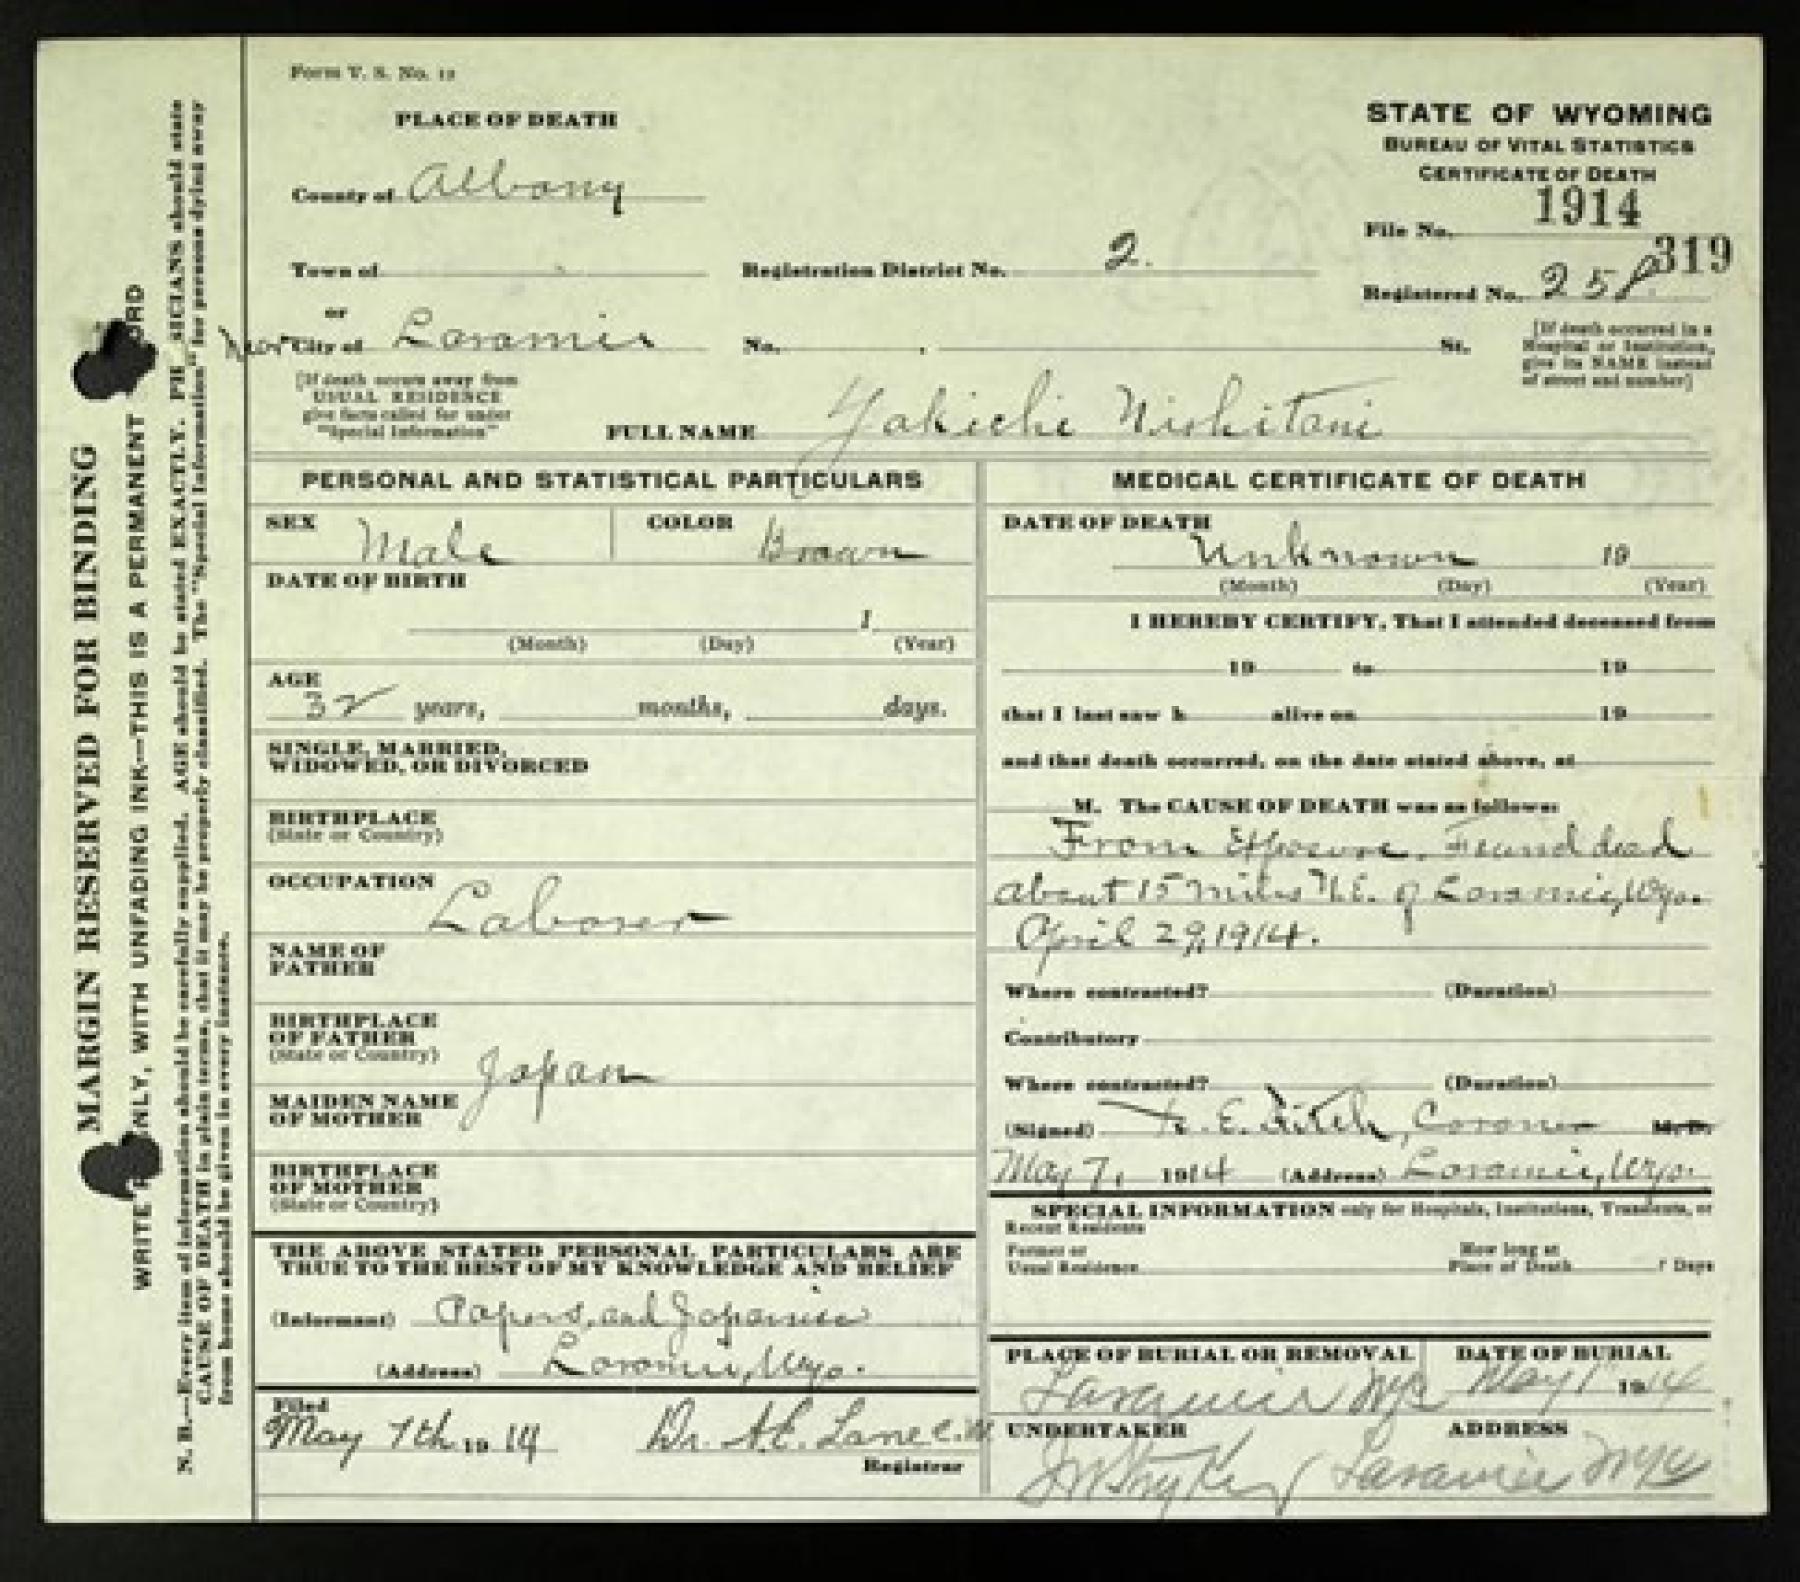 Form V. S. No. 12
PLACE OF DEATH
County of Albany
Town of
or
near City of Laramie
[If death occurs away from
USUAL RESIDENCE
give facts called for under
"Special Information"
STATE OF WYOMING
BUREAU OF VITAL STATISTICS
CERTIFICATE OF DEATH
1914
File No.
319
Registration District No. 2.
Registered No. 258.
No. St.
[If death occurred in a
Hospital or Institution,
give its NAME instead
of street and number]
FULL NAME Yakichi Nishitani
PERSONAL AND STATISTICAL PARTICULARS
SEX Male COLOR Brown
DATE OF BIRTH
1
(Month) (Day) (Year)
AGE
32 years, months, days.
SINGLE, MARRIED,
WIDOWED, OR DIVORCED
BIRTHPLACE
(State or Country)
OCCUPATION Laborer
NAME OF
FATHER
BIRTHPLACE
OF FATHER
(State or Country) Japan
MAIDEN NAME
OF MOTHER
BIRTHPLACE
OF MOTHER
(State or Country)
THE ABOVE STATED PERSONAL PARTICULARS ARE
TRUE TO THE BEST OF MY KNOWLEDGE AND BELIEF
(Informant) Papers, and Japanese
(Address) Laramie, Wyo.
Filed
May 7th 1914 Dr. A.E. Lane
Registrar
MEDICAL CERTIFICATE OF DEATH
DATE OF DEATH
Unknown 19
(Month) (Day) (Year)
I HEREBY CERTIFY, That I attended deceased from
19 to 19
that I last saw h alive on 19
and that death occurred, on the date stated above, at
M. The CAUSE OF DEATH was as follows:
From Exposure. Found dead
about 15 miles N.E. of Laramie, Wyo.
April 29, 1914.
Where contracted? (Duration)
Contributory
Where contracted? (Duration)
(Signed) E. Fitch, Coroner M. D.
May 7, 1914 (Address) Laramie, Wyo.
SPECIAL INFORMATION only for Hospitals, Institutions, Transients, or
Recent Residents
Former or How long at
Usual Residence Place of Death ? Days
PLACE OF BURIAL OR REMOVAL DATE OF BURIAL
Laramie Wyo May 1 1914
UNDERTAKER ADDRESS
J W Stryker Laramie Wyo
MARGIN RESERVED FOR BINDING
WRITE PLAINLY, WITH UNFADING INK—THIS IS A PERMANENT RECORD
N. B.—Every item of information should be carefully supplied. AGE should be stated EXACTLY. PHYSICIANS should state
CAUSE OF DEATH in plain terms, that it may be properly classified. The "Special Information" for persons dying away
from home should be given in every instance.